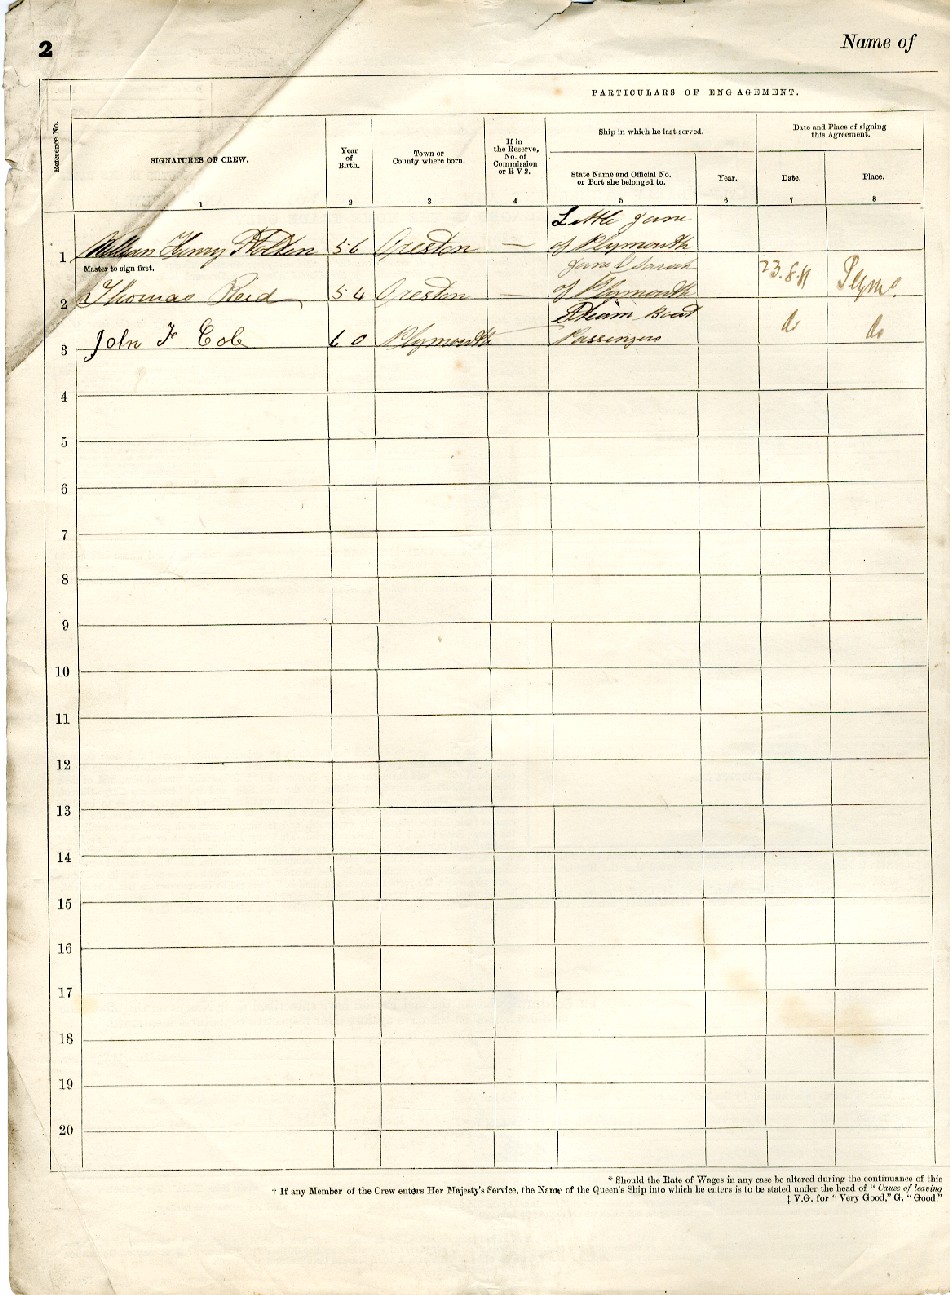 2
Name of
PARTICULARS OF ENGAGEMENT.
Reference No.
SIGNATURES OF CREW.
Year
of
Birth.
Town or
County where born.
If in
the Reserve,
No. of
Commission
or R V 2.
Ship in which he last served.
State Name and Official No.
or Port she belonged to.
Year.
Date and Place of signing
this Agreement.
Date.
Place.
1 2 3 4 5 6 7 8
Little Jane
1 William Henry 56 Oreston — of Plymouth
Master to sign first.
Jane & Sarah
2 Thomas Reid 54 Oreston — of Plymouth 23.8.
Steam Boat
3 John F Cole 60 Plymouth Passengers do do
4
5
6
7
8
9
10
11
12
13
14
15
16
17
18
19
20
* Should the Rate of Wages in any case be altered during the continuance of this
† If any Member of the Crew enters Her Majesty's Service, the Name of the Queen's Ship into which he enters is to be stated under the head of "Cause of leaving
‡ V.G. for "Very Good," G. "Good"